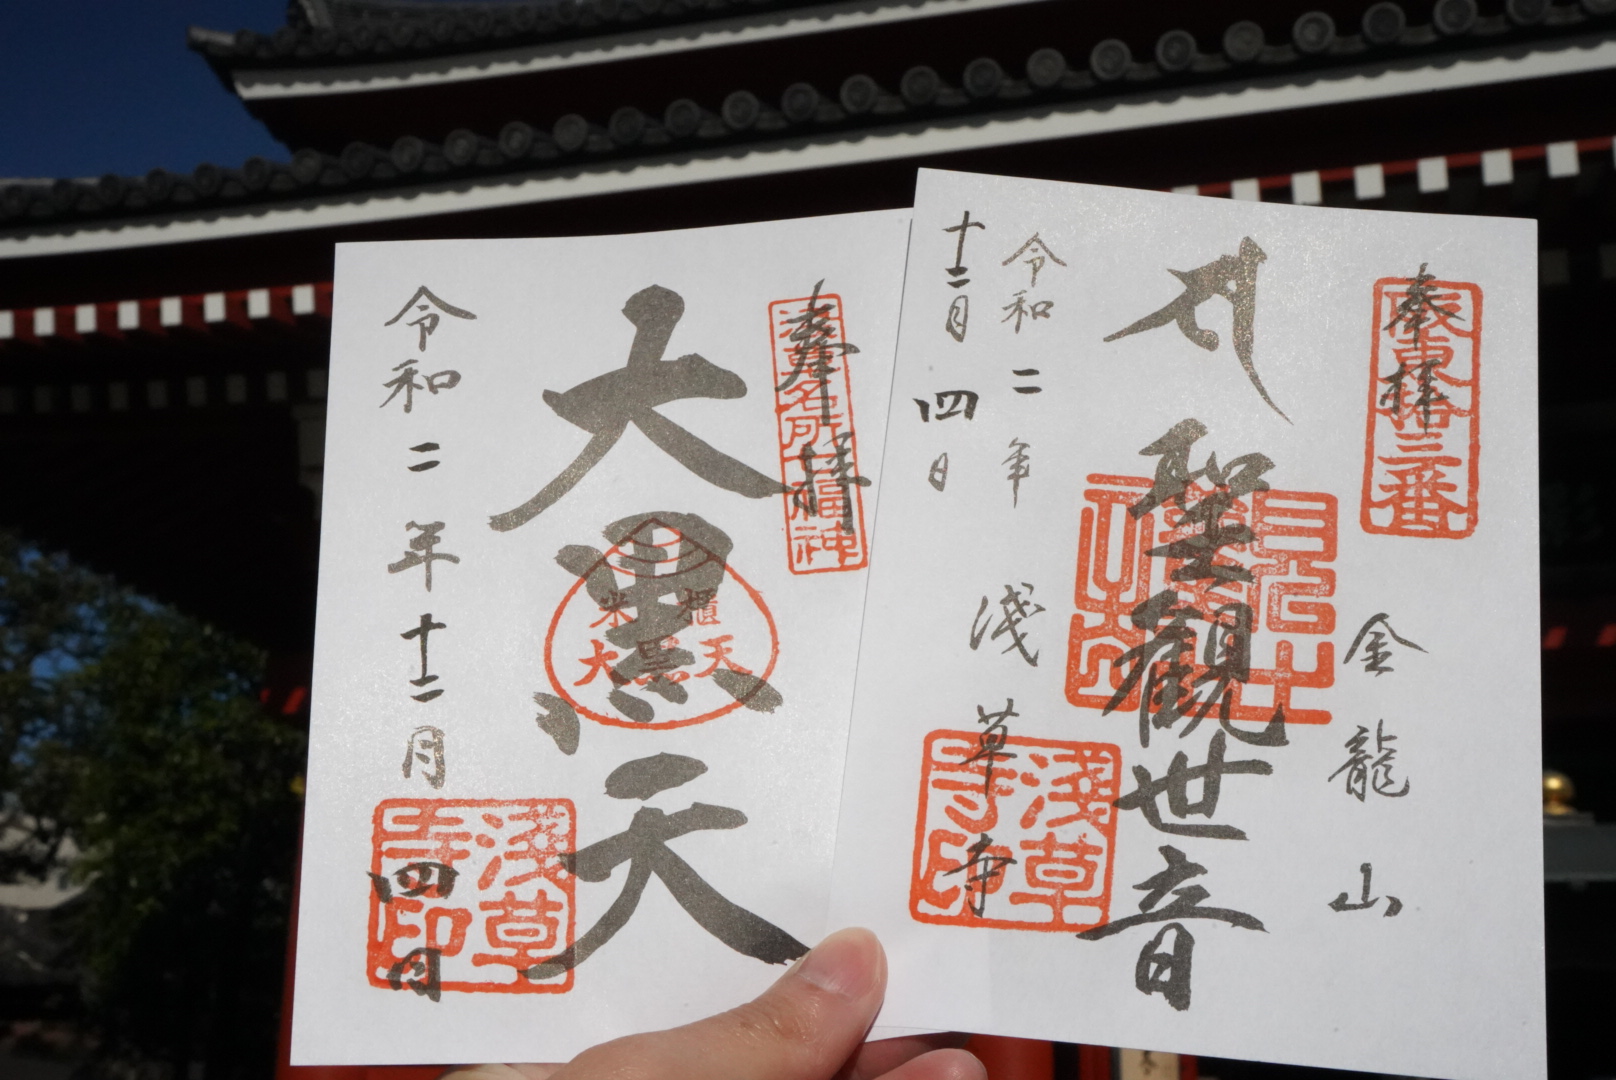 奉拝
浅草名所七福神
大黒天
米櫃
大黒天
令和二年十二月四日
浅草寺印
奉拝
坂東拾三番
金龍山
聖観世音
令和二年
十二月四日
浅草寺
浅草寺印